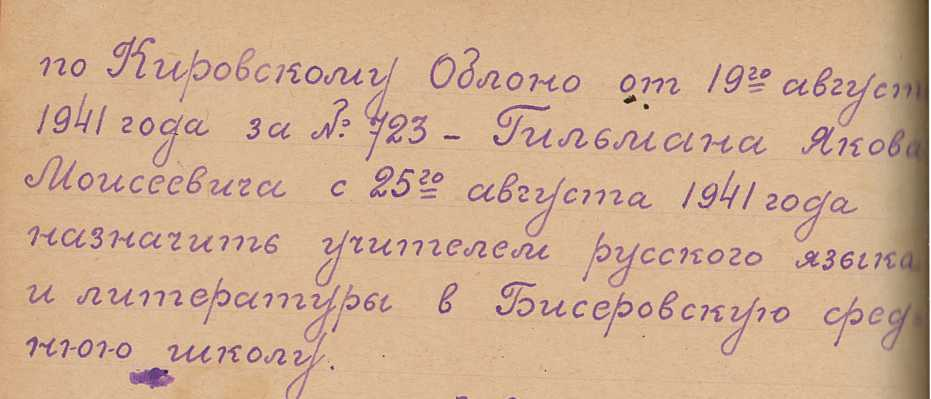 по Кировскому Облоно от 19го август
1941 года за №: 723 – Гильмана Якова
Моисеевича с 25го августа 1941 года
назначить учителем русского языка
и литературы в Бисеровскую сред-
нюю школу.